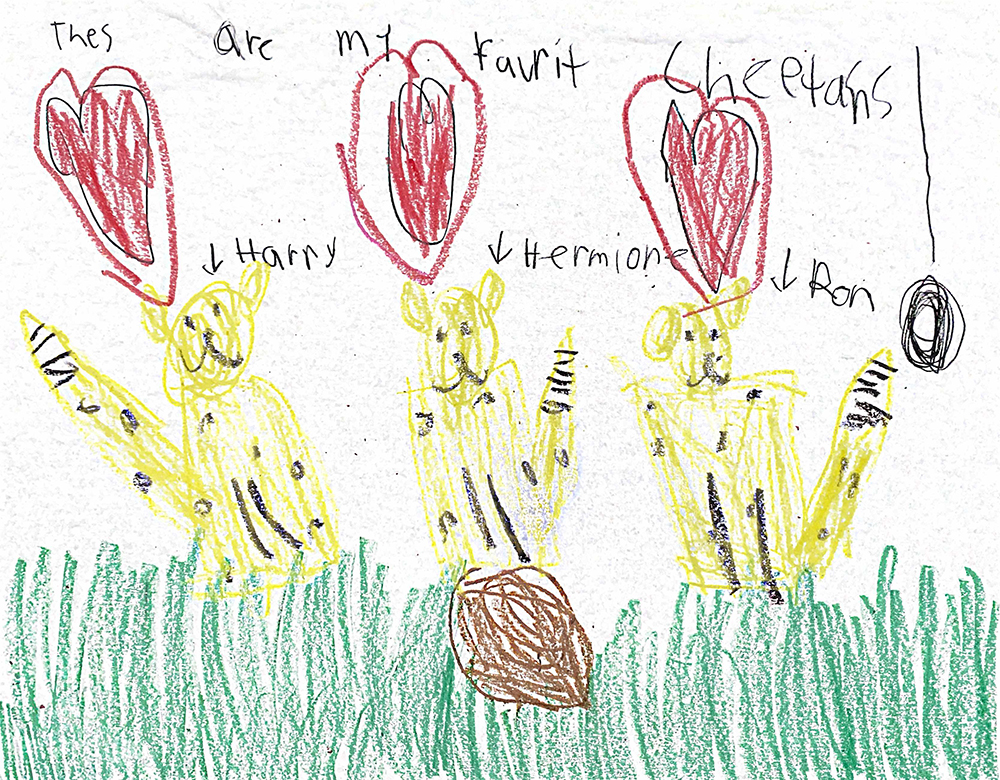 Thes are my favrit Cheetahs!
↓ Harry ↓ Hermione ↓ Ron